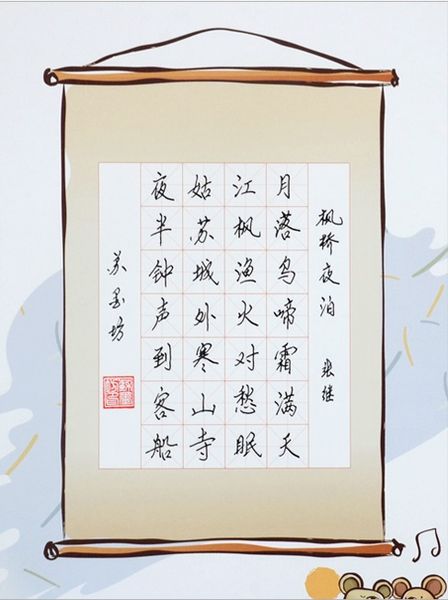 枫桥夜泊 张继
月落乌啼霜满天
江枫渔火对愁眠
姑苏城外寒山寺
夜半钟声到客船
苏墨坊